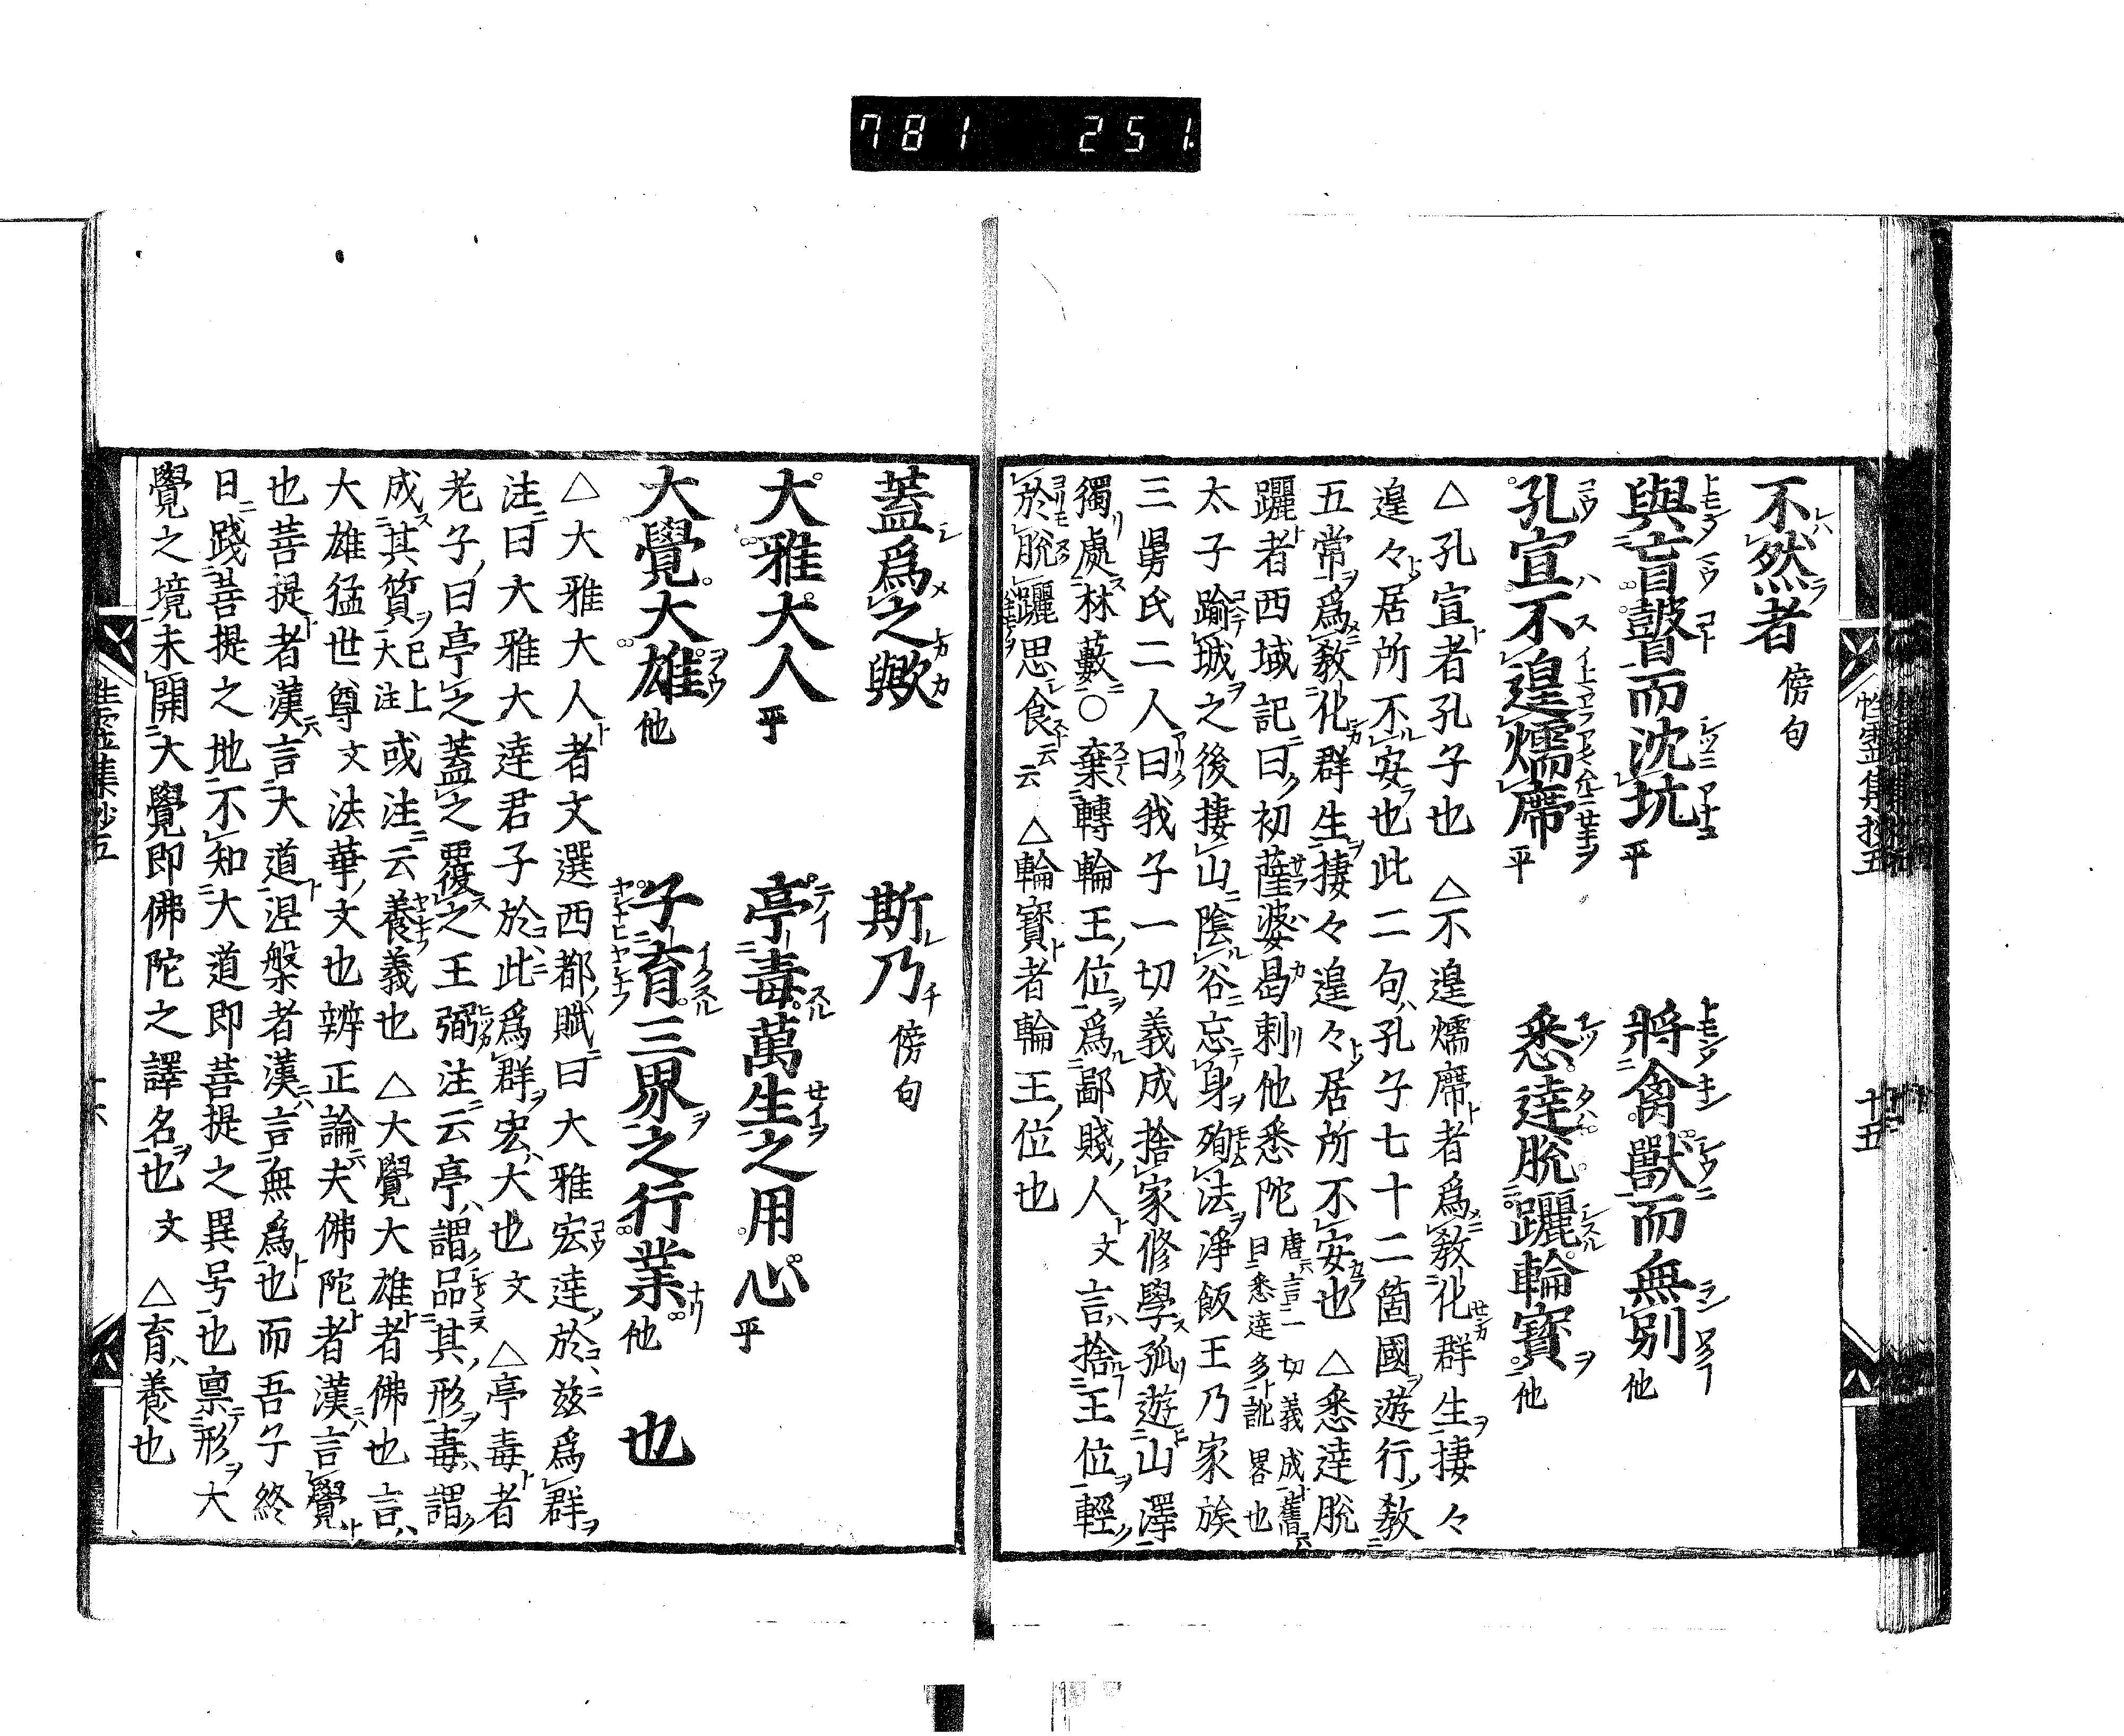 781 251
不然者 傍句
與盲瞽而沈坑 平 將禽獸而無別 他
孔宣不遑燸席 平 悉達脫躧輪寶 他
△孔宣者孔子也 △不遑燸席者爲敎化群生捿々
遑々居所不安也此二句孔子七十二箇國遊行敎
五常爲敎化群生捿々遑々居所不安也 △悉達脫
躧者西域記曰初薩婆曷剌他悉陀唐言一切義成舊曰悉達多訛畧也
太子踰城之後捿山陰谷忘身殉法淨飯王乃家族
三舅氏二人曰我子一切義成捨家修學孤遊山澤
獨處林藪○棄轉輪王位爲鄙賤人文言捨王位輕
於脫躧思食云云 △輪寶者輪王位也
性靈集抄五 十五
蓋爲之歟 斯乃 傍句
大雅大人 平 亭毒萬生之用心 平
大覺大雄 他 子育三界之行業 他 也
△大雅大人者文選西都賦曰大雅宏達於兹爲群
注曰大雅大達君子於此爲群宏大也文 △亭毒者
老子曰亭之蓋之覆之王弼注云亭謂品其形毒謂
成其質已上大注或注云養義也 △大覺大雄者佛也言
大雄猛世尊文法華文也辨正論夫佛陀者漢言覺
也菩提者漢言大道涅槃者漢言無爲也而吾子終
日踐菩提之地不知大道即菩提之異号也禀形大
覺之境未開大覺即佛陀之譯名也文 △育養也